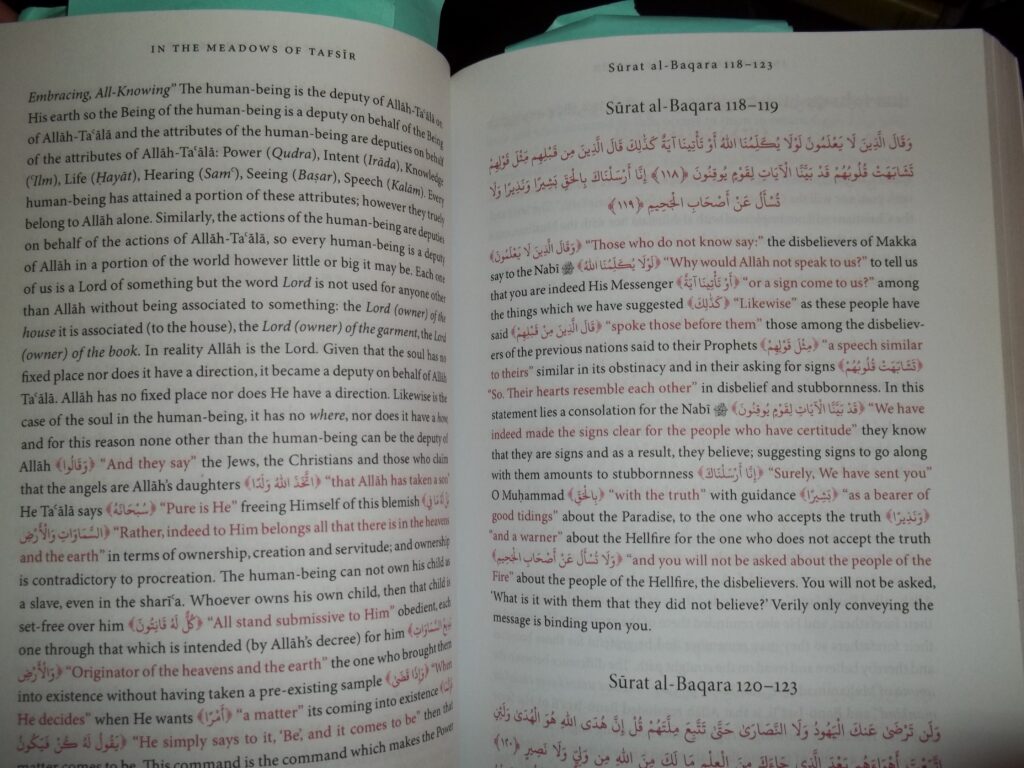 IN THE MEADOWS OF TAFSĪR
Embracing, All-Knowing” The human-being is the deputy of Allāh-Taʿālā on
His earth so the Being of the human-being is a deputy on behalf of the Being
of Allāh-Taʿālā and the attributes of the human-being are deputies on behalf
of the attributes of Allāh-Taʿālā: Power (Qudra), Intent (Irāda), Knowledge
(ʿIlm), Life (Ḥayāt), Hearing (Samʿ), Seeing (Baṣar), Speech (Kalām). Every
human-being has attained a portion of these attributes; however they truely
belong to Allāh alone. Similarly, the actions of the human-being are deputies
on behalf of the actions of Allāh-Taʿālā, so every human-being is a deputy
of Allāh in a portion of the world however little or big it may be. Each one
of us is a Lord of something but the word Lord is not used for anyone other
than Allāh without being associated to something: the Lord (owner) of the
house it is associated (to the house), the Lord (owner) of the garment, the Lord
(owner) of the book. In reality Allāh is the Lord. Given that the soul has no
fixed place nor does it have a direction, it became a deputy on behalf of Allāh
Taʿālā. Allāh has no fixed place nor does He have a direction. Likewise is the
case of the soul in the human-being, it has no where, nor does it have a how,
and for this reason none other than the human-being can be the deputy of
Allāh ﴿وَقَالُوا﴾ “And they say” the Jews, the Christians and those who claim
that the angels are Allāh’s daughters ﴿اتَّخَذَ اللهُ وَلَدًا﴾ “that Allāh has taken a son”
He Taʿālā says ﴿سُبْحَانَهُ﴾ “Pure is He” freeing Himself of this blemish ﴿بَل لَّهُ مَا فِي
السَّمَاوَاتِ وَالْأَرْضِ﴾ “Rather, indeed to Him belongs all that there is in the heavens
and the earth” in terms of ownership, creation and servitude; and ownership
is contradictory to procreation. The human-being can not own his child as
a slave, even in the sharīʿa. Whoever owns his own child, then that child is
set-free over him ﴿كُلٌّ لَهُ قَانِتُونَ﴾ “All stand submissive to Him” obedient, each
one through that which is intended (by Allāh’s decree) for him ﴿بَدِيعُ السَّمَاوَاتِ
وَالْأَرْضِ﴾ “Originator of the heavens and the earth” the one who brought them
into existence without having taken a pre-existing sample ﴿وَإِذَا قَضَىٰ﴾ “When
He decides” when He wants ﴿أَمْرًا﴾ “a matter” its coming into existence ﴿فَإِنَّمَا
يَقُولُ لَهُ كُنْ فَيَكُونُ﴾ “He simply says to it, ‘Be’, and it comes to be” then that
matter comes to be. This command is the command which makes the Power
Sūrat al-Baqara 118–123
Sūrat al-Baqara 118–119
وَقَالَ الَّذِينَ لَا يَعْلَمُونَ لَوْلَا يُكَلِّمُنَا اللهُ أَوْ تَأْتِينَا آيَةٌ كَذَٰلِكَ قَالَ الَّذِينَ مِن قَبْلِهِم مِّثْلَ قَوْلِهِمْ
تَشَابَهَتْ قُلُوبُهُمْ قَدْ بَيَّنَّا الْآيَاتِ لِقَوْمٍ يُوقِنُونَ ﴿١١٨﴾ إِنَّا أَرْسَلْنَاكَ بِالْحَقِّ بَشِيرًا وَنَذِيرًا وَلَا
تُسْأَلُ عَنْ أَصْحَابِ الْجَحِيمِ ﴿١١٩﴾
﴿وَقَالَ الَّذِينَ لَا يَعْلَمُونَ﴾ “Those who do not know say:” the disbelievers of Makka
say to the Nabī ﷺ ﴿لَوْلَا يُكَلِّمُنَا اللهُ﴾ “Why would Allāh not speak to us?” to tell us
that you are indeed His Messenger ﴿أَوْ تَأْتِينَا آيَةٌ﴾ “or a sign come to us?” among
the things which we have suggested ﴿كَذَٰلِكَ﴾ “Likewise” as these people have
said ﴿قَالَ الَّذِينَ مِنْ قَبْلِهِمْ﴾ “spoke those before them” those among the disbeliev-
ers of the previous nations said to their Prophets ﴿مِثْلَ قَوْلِهِمْ﴾ “a speech similar
to theirs” similar in its obstinacy and in their asking for signs ﴿تَشَابَهَتْ قُلُوبُهُمْ﴾
“So. Their hearts resemble each other” in disbelief and stubbornness. In this
statement lies a consolation for the Nabī ﷺ ﴿قَدْ بَيَّنَّا الْآيَاتِ لِقَوْمٍ يُوقِنُونَ﴾ “We have
indeed made the signs clear for the people who have certitude” they know
that they are signs and as a result, they believe; suggesting signs to go along
with them amounts to stubbornness ﴿إِنَّا أَرْسَلْنَاكَ﴾ “Surely, We have sent you”
O Muḥammad ﴿بِالْحَقِّ﴾ “with the truth” with guidance ﴿بَشِيرًا﴾ “as a bearer of
good tidings” about the Paradise, to the one who accepts the truth ﴿وَنَذِيرًا﴾
“and a warner” about the Hellfire for the one who does not accept the truth
﴿وَلَا تُسْأَلُ عَنْ أَصْحَابِ الْجَحِيمِ﴾ “and you will not be asked about the people of the
Fire” about the people of the Hellfire, the disbelievers. You will not be asked,
‘What is it with them that they did not believe?’ Verily only conveying the
message is binding upon you.
Sūrat al-Baqara 120–123
وَلَن تَرْضَىٰ عَنكَ الْيَهُودُ وَلَا النَّصَارَىٰ حَتَّىٰ تَتَّبِعَ مِلَّتَهُمْ قُلْ إِنَّ هُدَى اللهِ هُوَ الْهُدَىٰ وَلَئِنِ
اتَّبَعْتَ أَهْوَاءَهُم بَعْدَ الَّذِي جَاءَكَ مِنَ الْعِلْمِ مَا لَكَ مِنَ اللهِ مِن وَلِيٍّ وَلَا نَصِيرٍ ﴿١٢٠﴾